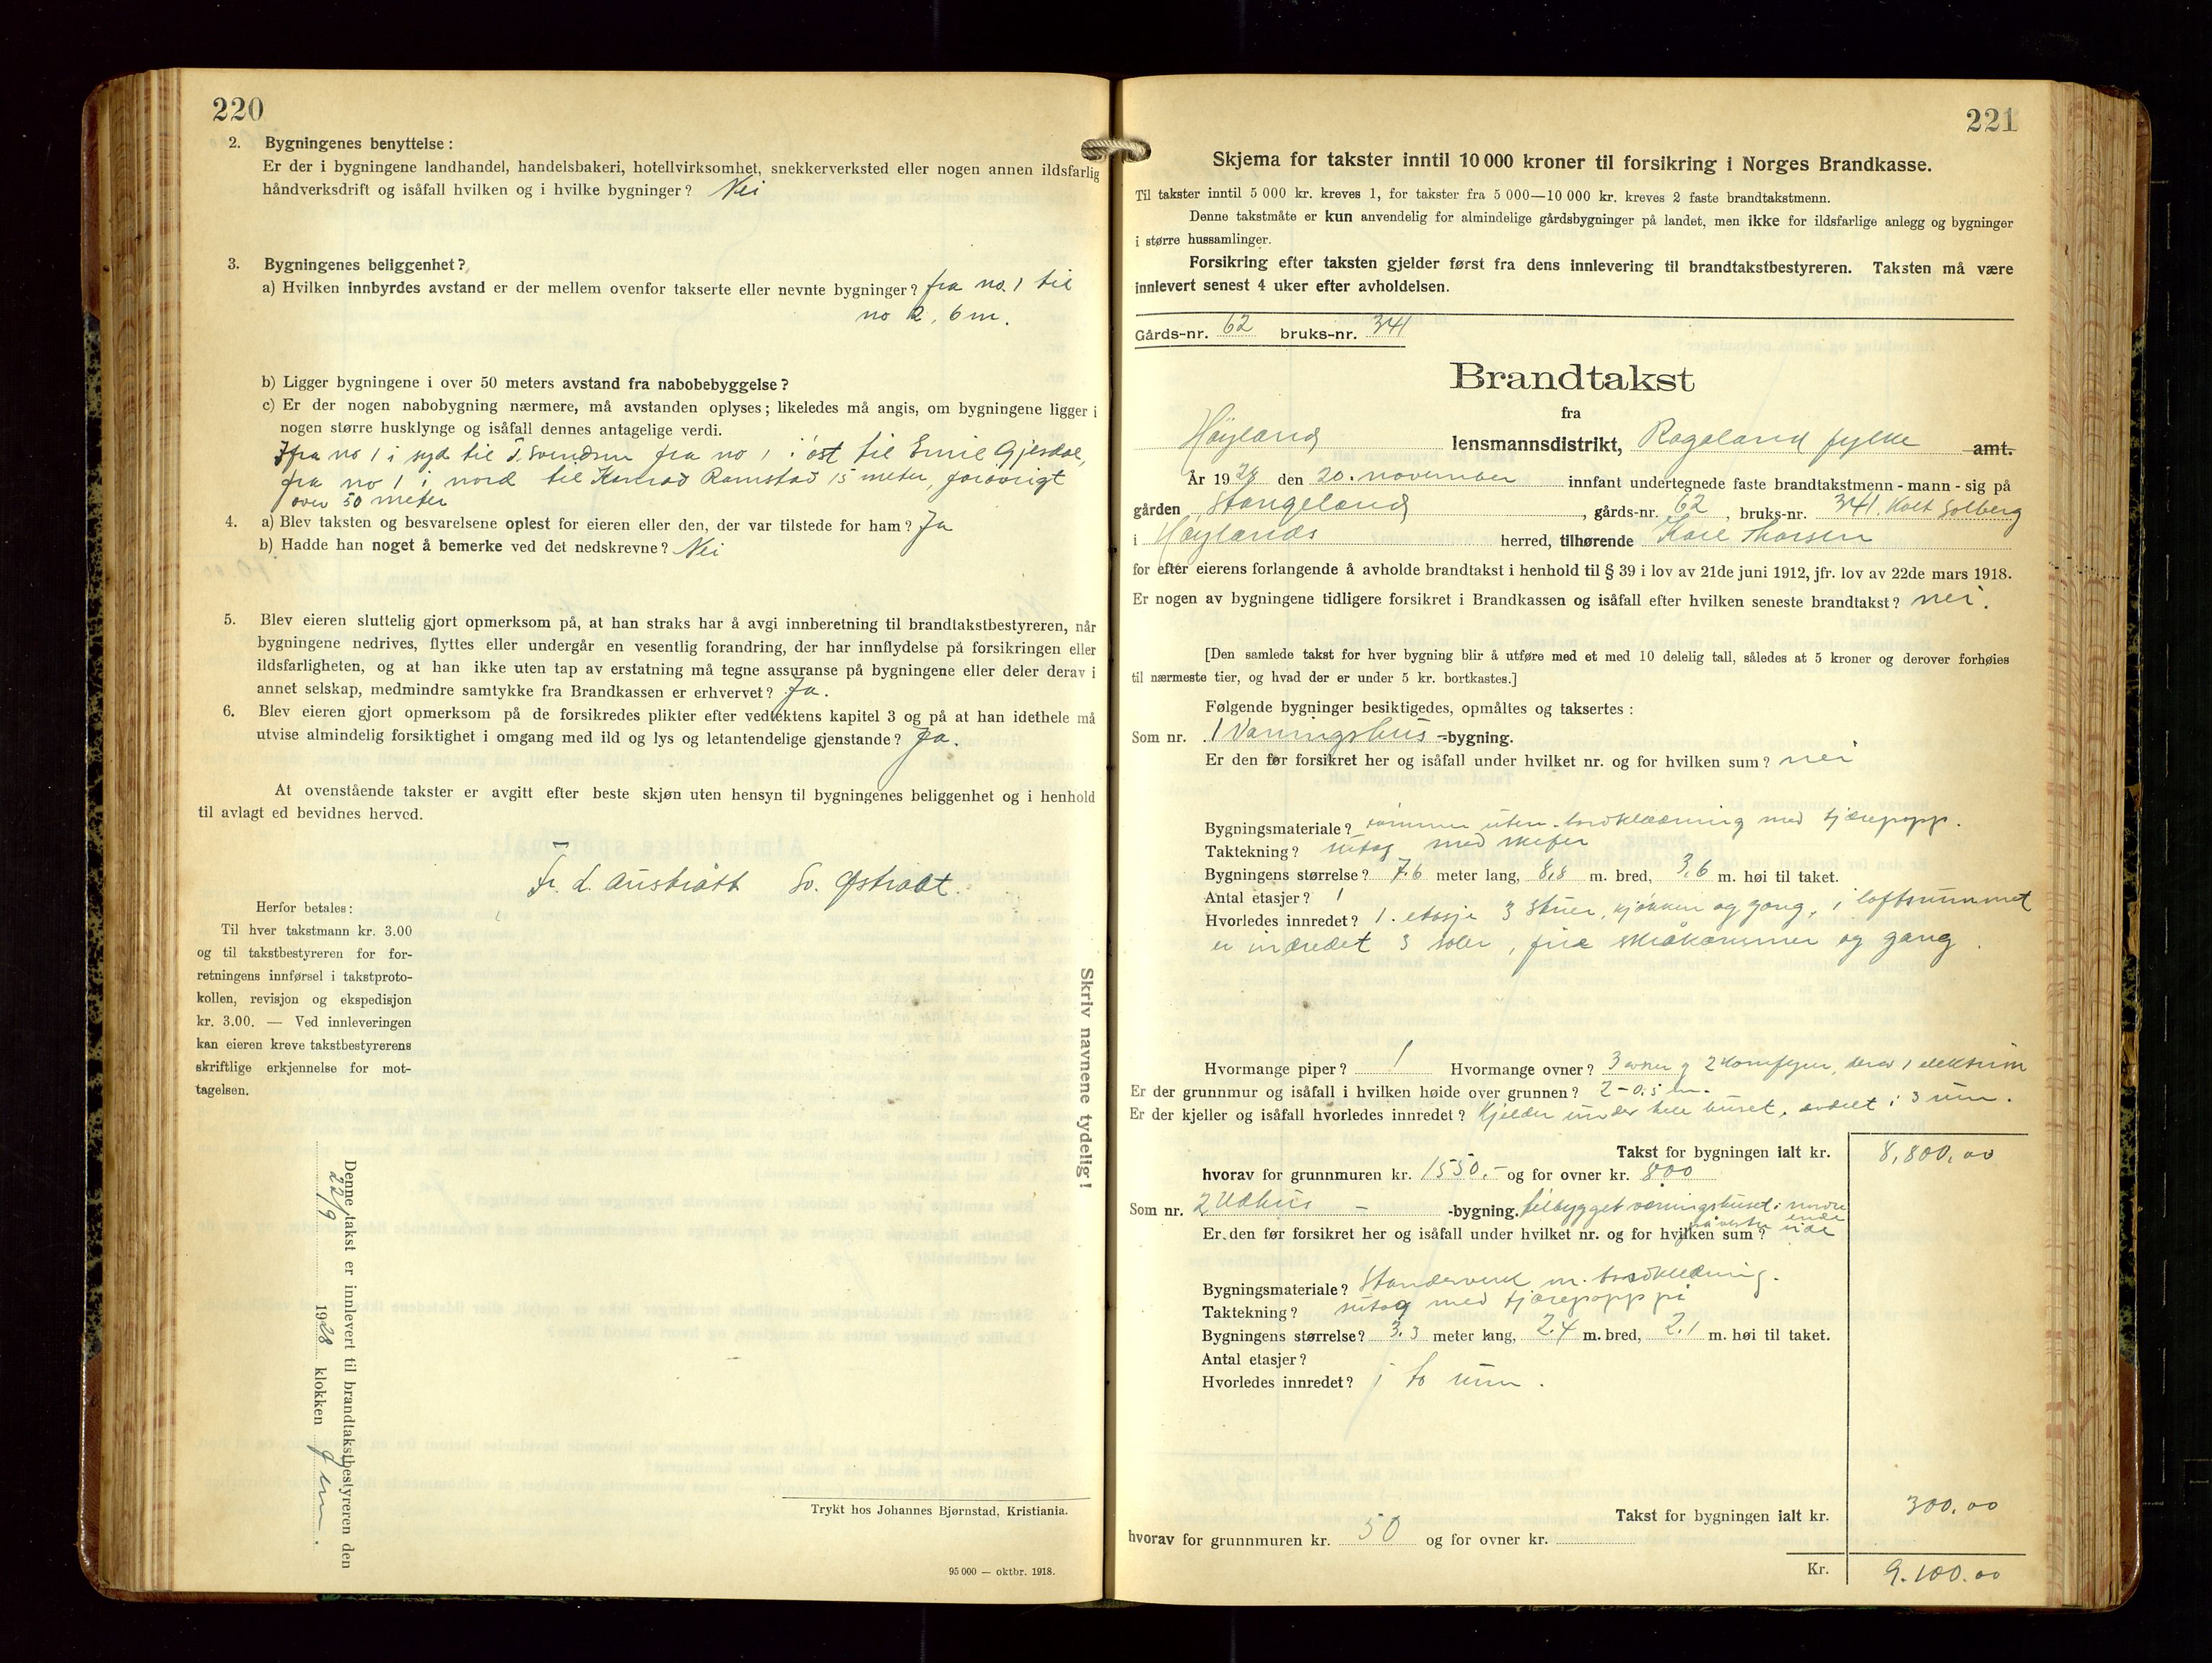 220
2. Bygningenes benyttelse:
Er der i bygningene landhandel, handelsbakeri, hotellvirksomhet, snekkerverksted eller nogen annen ildsfarlig
håndverksdrift og isåfall hvilken og i hvilke bygninger? Nei
3. Bygningenes beliggenhet?
a) Hvilken innbyrdes avstand er der mellem ovenfor takserte eller nevnte bygninger? fra no. 1 til
no 2, 6 m.
b) Ligger bygningene i over 50 meters avstand fra nabobebyggelse?
c) Er der nogen nabobygning nærmere, må avstanden oplyses; likeledes må angis, om bygningene ligger i
nogen større husklynge og isåfall dennes antagelige verdi.
fra no 1 i syd til T. Svendsen fra no 1 i öst til Emil Gjesdal,
fra no 1 i nord til Konrad Ramstad 15 meter, forøvrigt
over 50 meter
4. a) Blev taksten og besvarelsene oplest for eieren eller den, der var tilstede for ham? Ja
b) Hadde han noget å bemerke ved det nedskrevne? Nei
5. Blev eieren sluttelig gjort opmerksom på, at han straks har å avgi innberetning til brandtakstbestyreren, når
bygningene nedrives, flyttes eller undergår en vesentlig forandring, der har innflydelse på forsikringen eller
ildsfarligheten, og at han ikke uten tap av erstatning må tegne assuranse på bygningene eller deler derav i
annet selskap, medmindre samtykke fra Brandkassen er erhvervet? Ja.
6. Blev eieren gjort opmerksom på de forsikredes plikter efter vedtektens kapitel 3 og på at han idethele må
utvise almindelig forsiktighet i omgang med ild og lys og letantendelige gjenstande? Ja.
At ovenstående takster er avgitt efter beste skjøn uten hensyn til bygningenes beliggenhet og i henhold
til avlagt ed bevidnes herved.
Fr. L. Austrått Sv. Østraat.
Herfor betales:
Til hver takstmann kr. 3.00
og til takstbestyreren for for-
retningens innførsel i takstproto-
kollen, revisjon og ekspedisjon
kr. 3.00. — Ved innleveringen
kan eieren kreve takstbestyrerens
skriftlige erkjennelse for mot-
tagelsen.
Skriv navnene tydelig!
Denne takst er innlevert til brandtakstbestyreren den
22/9 1928 klokken 9 em.
Trykt hos Johannes Bjørnstad, Kristiania.
95 000 — oktbr. 1918.
221
Skjema for takster inntil 10 000 kroner til forsikring i Norges Brandkasse.
Til takster inntil 5 000 kr. kreves 1, for takster fra 5 000—10 000 kr. kreves 2 faste brandtakstmenn.
Denne takstmåte er kun anvendelig for almindelige gårdsbygninger på landet, men ikke for ildsfarlige anlegg og bygninger
i større hussamlinger.
Forsikring efter taksten gjelder først fra dens innlevering til brandtakstbestyreren. Taksten må være
innlevert senest 4 uker efter avholdelsen.
Gårds-nr. 62 bruks-nr. 341
Brandtakst
fra
Høyland lensmannsdistrikt, Rogaland fylke amt.
År 1928 den 20. november innfant undertegnede faste brandtakstmenn - mann - sig på
gården Stangeland, gårds-nr. 62, bruks-nr. 341. Kalt Solberg
i Høylands herred, tilhørende Karl Thorsen
for efter eierens forlangende å avholde brandtakst i henhold til § 39 i lov av 21de juni 1912, jfr. lov av 22de mars 1918.
Er nogen av bygningene tidligere forsikret i Brandkassen og isåfall efter hvilken seneste brandtakst? nei.
[Den samlede takst for hver bygning blir å utføre med et med 10 delelig tall, således at 5 kroner og derover forhøies
til nærmeste tier, og hvad der er under 5 kr. bortkastes.]
Følgende bygninger besiktigedes, opmåltes og taksertes:
Som nr. 1 Vaningshus -bygning.
Er den før forsikret her og isåfall under hvilket nr. og for hvilken sum? nei
Bygningsmateriale? tømmer uten. bordklædning med tjærepapp.
Taktekning? sutag med skifer
Bygningens størrelse? 7.6 meter lang, 8,8 m. bred, 3,6 m. høi til taket.
Antal etasjer? 1
Hvorledes innredet? 1. etasje 3 stuer, kjøkken og gang, i loftsrummet
er indredet 3 soler, fire skråkammer og gang.
Hvormange piper? 1 Hvormange ovner? 3 ovner og 2 komfyrer, derav 1 elektrisk
Er der grunnmur og isåfall i hvilken høide over grunnen? 2-0,5 m.
Er der kjeller og isåfall hvorledes innredet? Kjelder under hele huset, avdelt i 3 rum.
Takst for bygningen ialt kr. 8,800,00
hvorav for grunnmuren kr. 1550.- og for ovner kr. 800
Som nr. 2 Udhus - -bygning. tilbygget vaningshuset i nordre ende
på vestre side
Er den før forsikret her og isåfall under hvilket nr. og for hvilken sum?
Bygningsmateriale? Standerverk m. bordklædning.
Taktekning? sutag med tjærepapp på
Bygningens størrelse? 3.3 meter lang, 2.4 m. bred, 2.1 m. høi til taket.
Antal etasjer?
Hvorledes innredet? i to rum.
Takst for bygningen ialt kr. 300.00
hvorav for grunnmuren kr. 50 og for ovner kr.
Kr. 9.100.00